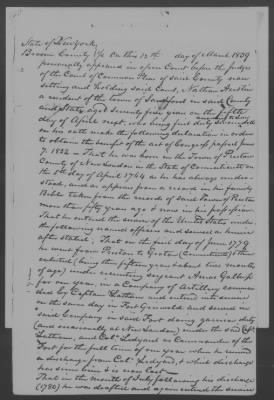 State of New York,
Broom County SS On this 12th day of March 1839
personally appeared in open Court before the judges
of the Court of Common Pleas of said County now
sitting and holding said Court, Nathan Austin
a resident of the town of Sandford in said County
and State, aged seventy five years on the fifth
day of April next, who being first duly sworn doth
on his oath make the following declaration in order
to obtain the benefit of the act of Congress passed June
7. 1832 = That he was born in the Town of Preston
County of New London in the State of Connecticut on
the 5th day of April 1764 as he has always under-
stood, and as appears from a record in his family
Bible taken from the records of said Town of Preston
more than fifty years ago & now in his possession
That he entered the service of the United States under
the following named officers and served as herein
after stated. That on the first day of June 1779
he went from Preston to Groton (Connecticut) & then
enlisted (being then fifteen years & about two months
of age) under recruiting sergeant Amos Gallup
for one year, in a Company of Artillery comman-
ded by Captain Latham and entered into service
on the same day in Fort Griswold and served in
said Company in said Fort doing garrison duty
(and occasionally at New London) under the said Capt
Latham, and Col. Ledyard as Commander of the
Fort for the full term of one year when he received
a discharge from Col. Ledyard, & which discharge
has since been & is now lost—
That in the month of July following his discharge
(1780) he was drafted and again entered the service